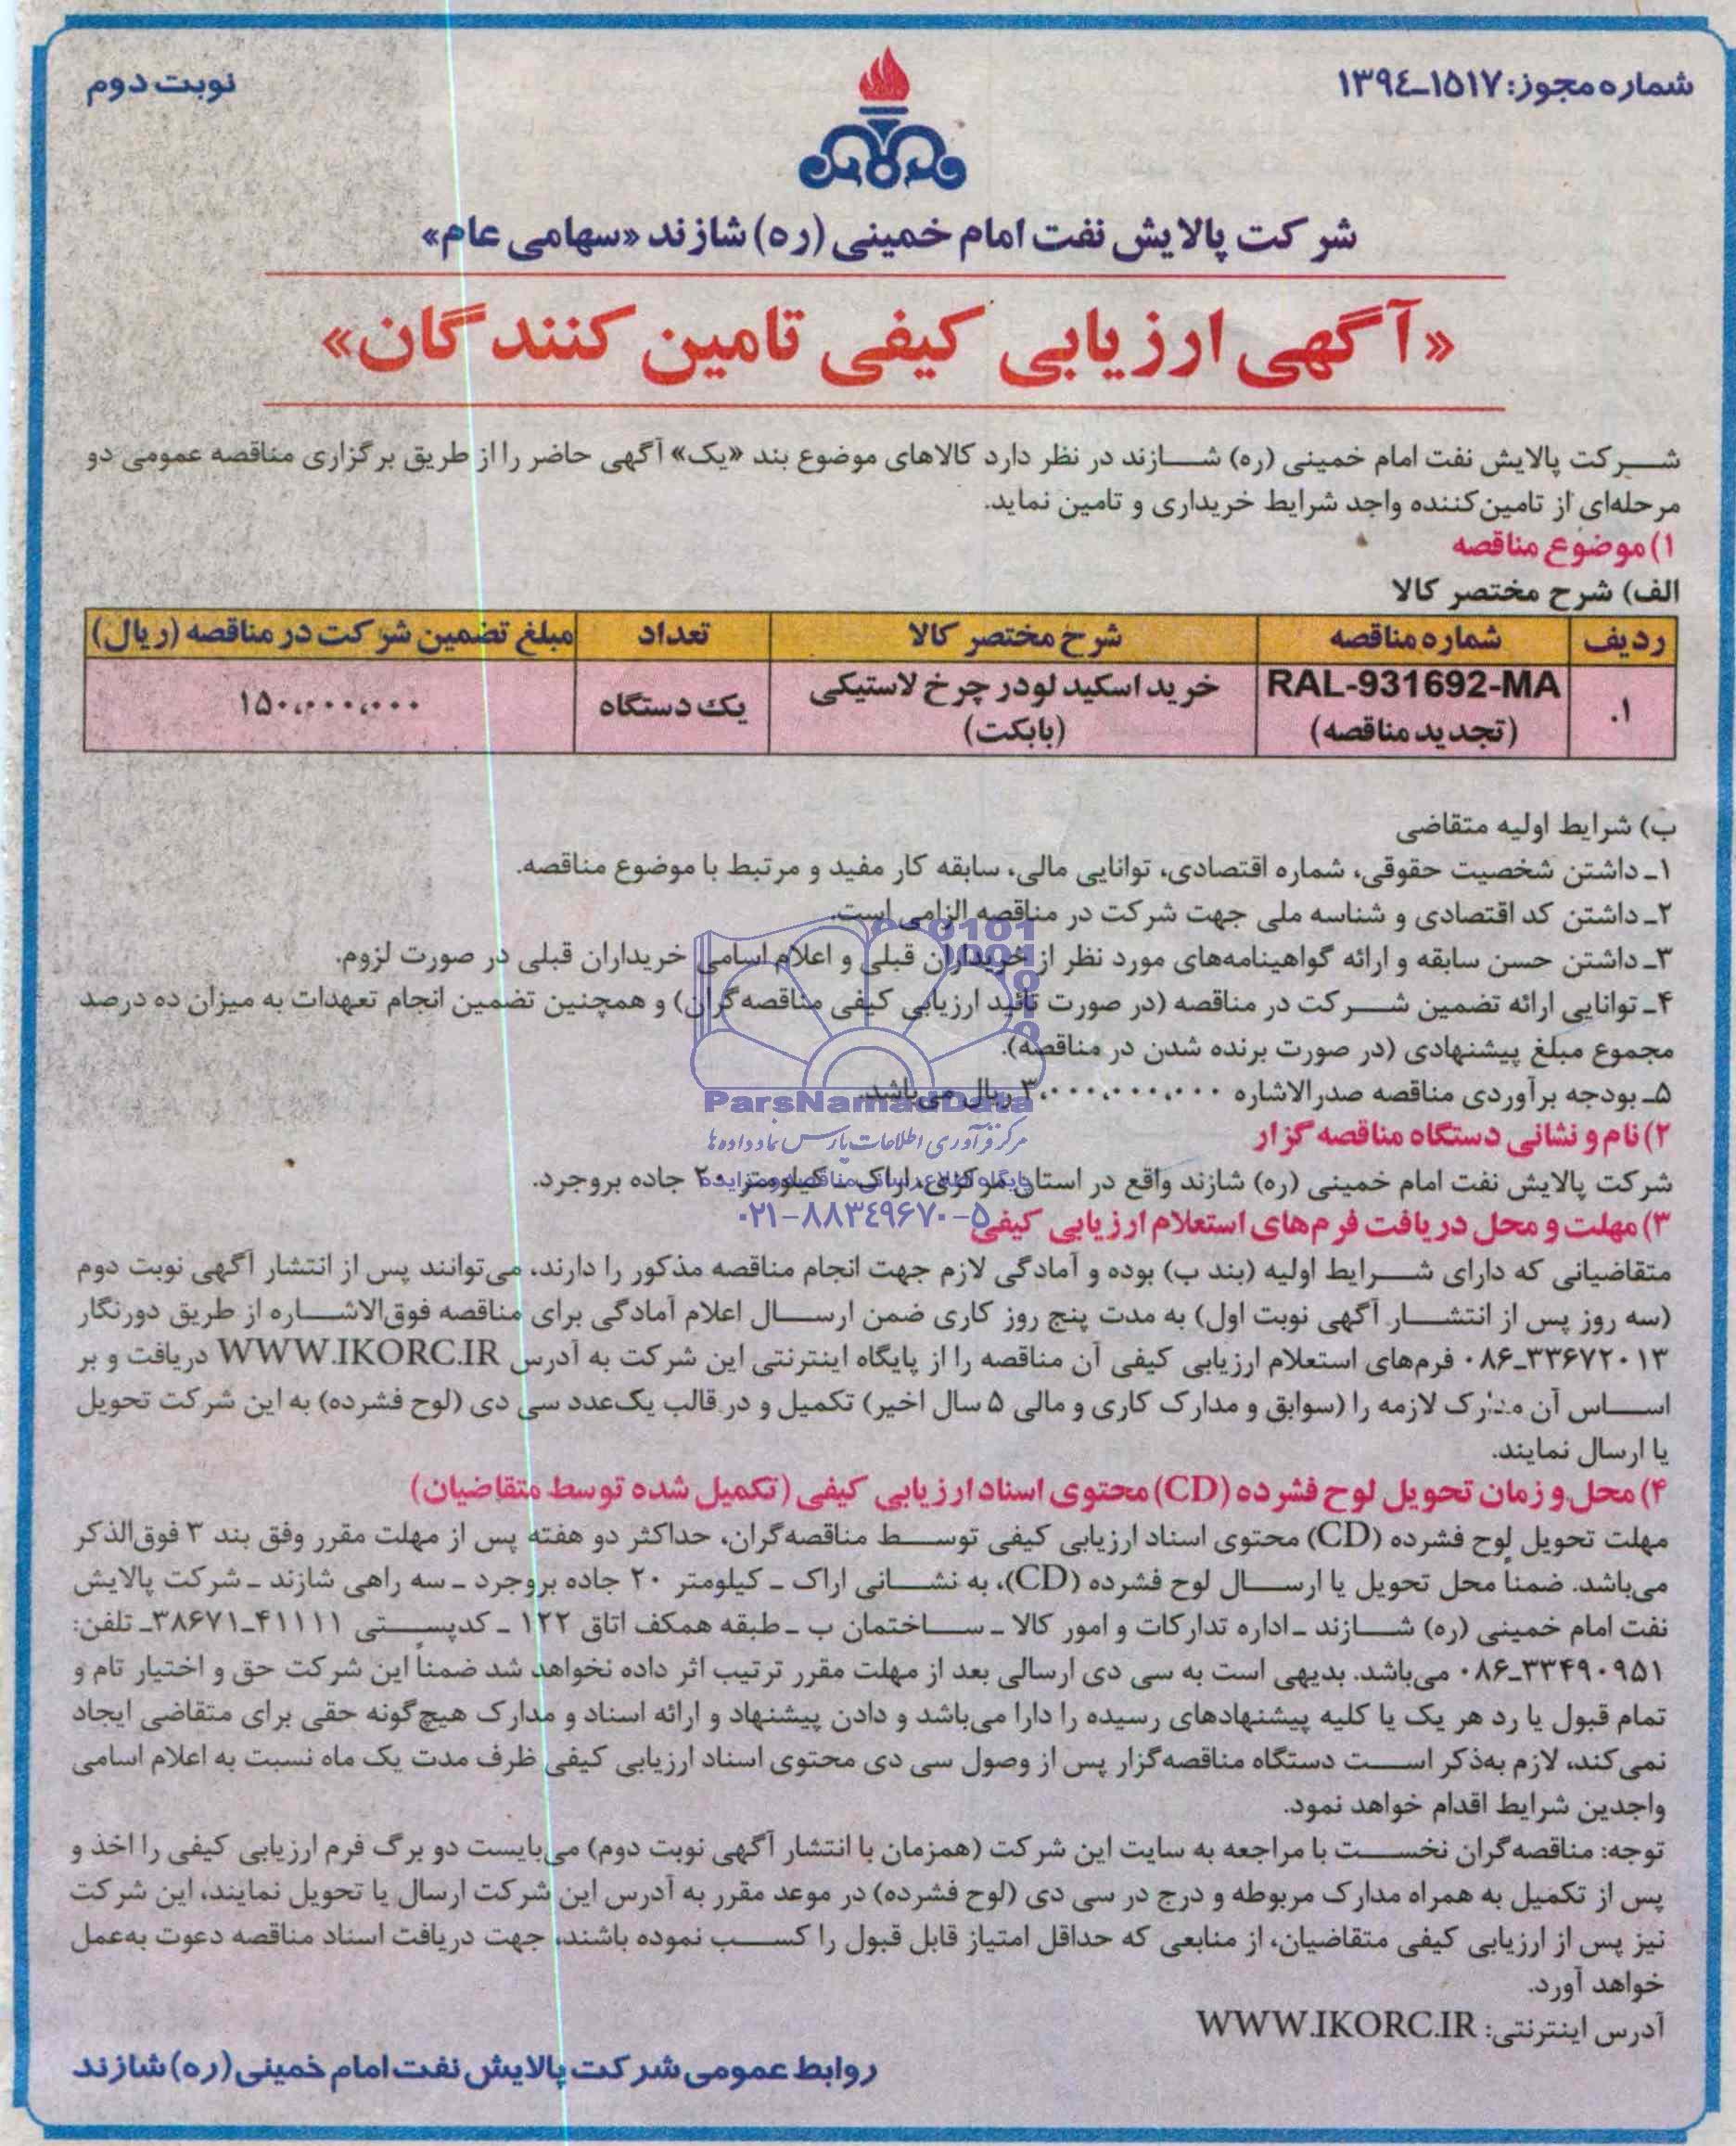 شماره مجوز: ۱۵۱۷ـ۱۳۹٤
نوبت دوم
شرکت پالایش نفت امام خمینی (ره) شازند «سهامی عام»
«آگهی ارزیابی کیفی تامین کنندگان»
شرکت پالایش نفت امام خمینی (ره) شازند در نظر دارد کالاهای موضوع بند «یک» آگهی حاضر را از طریق برگزاری مناقصه عمومی دو
مرحله‌ای از تامین‌کننده واجد شرایط خریداری و تامین نماید.
۱) موضوع مناقصه
الف) شرح مختصر کالا
ردیف شماره مناقصه شرح مختصر کالا تعداد مبلغ تضمین شرکت در مناقصه (ریال)
۱. RAL-931692-MA خرید اسکید لودر چرخ لاستیکی یک دستگاه ۱۵۰،۰۰۰،۰۰۰
(تجدید مناقصه) (بابکت)
ب) شرایط اولیه متقاضی
۱ـ داشتن شخصیت حقوقی، شماره اقتصادی، توانایی مالی، سابقه کار مفید و مرتبط با موضوع مناقصه.
۲ـ داشتن کد اقتصادی و شناسه ملی جهت شرکت در مناقصه الزامی است.
۳ـ داشتن حسن سابقه و ارائه گواهینامه‌های مورد نظر از خریداران قبلی و اعلام اسامی خریداران قبلی در صورت لزوم.
۴ـ توانایی ارائه تضمین شرکت در مناقصه (در صورت تائید ارزیابی کیفی مناقصه‌گران) و همچنین تضمین انجام تعهدات به میزان ده درصد
مجموع مبلغ پیشنهادی (در صورت برنده شدن در مناقصه).
۵ـ بودجه برآوردی مناقصه صدرالاشاره ۳،۰۰۰،۰۰۰،۰۰۰ ریال می‌باشد.
ParsNamadData
مرکز فرآوری اطلاعات پارس نماد داده ها
پایگاه اطلاع رسانی مناقصه و مزایده
۰۲۱-۸۸۳٤۹۶۷۰-۵
۲) نام و نشانی دستگاه مناقصه گزار
شرکت پالایش نفت امام خمینی (ره) شازند واقع در استان مرکزی، اراک ـ کیلومتر ۲۰ جاده بروجرد.
۳) مهلت و محل دریافت فرم‌های استعلام ارزیابی کیفی
متقاضیانی که دارای شرایط اولیه (بند ب) بوده و آمادگی لازم جهت انجام مناقصه مذکور را دارند، می‌توانند پس از انتشار آگهی نوبت دوم
(سه روز پس از انتشار آگهی نوبت اول) به مدت پنج روز کاری ضمن ارسال اعلام آمادگی برای مناقصه فوق‌الاشاره از طریق دورنگار
۰۸۶ـ۳۳۶۷۲۰۱۳ فرم‌های استعلام ارزیابی کیفی آن مناقصه را از پایگاه اینترنتی این شرکت به آدرس WWW.IKORC.IR دریافت و بر
اساس آن مدارک لازمه را (سوابق و مدارک کاری و مالی ۵ سال اخیر) تکمیل و در قالب یک‌عدد سی دی (لوح فشرده) به این شرکت تحویل
یا ارسال نمایند.
۴) محل و زمان تحویل لوح فشرده (CD) محتوی اسناد ارزیابی کیفی (تکمیل شده توسط متقاضیان)
مهلت تحویل لوح فشرده (CD) محتوی اسناد ارزیابی کیفی توسط مناقصه‌گران، حداکثر دو هفته پس از مهلت مقرر وفق بند ۳ فوق‌الذکر
می‌باشد. ضمناً محل تحویل یا ارسال لوح فشرده (CD)، به نشانی اراک ـ کیلومتر ۲۰ جاده بروجرد ـ سه راهی شازند ـ شرکت پالایش
نفت امام خمینی (ره) شازند ـ اداره تدارکات و امور کالا ـ ساختمان ب ـ طبقه همکف اتاق ۱۲۲ ـ کدپستی ۴۱۱۱۱ـ۳۸۶۷۱ـ تلفن:
۰۸۶ـ۳۳۴۹۰۹۵۱ می‌باشد. بدیهی است به سی دی ارسالی بعد از مهلت مقرر ترتیب اثر داده نخواهد شد ضمناً این شرکت حق و اختیار تام و
تمام قبول یا رد هر یک یا کلیه پیشنهادهای رسیده را دارا می‌باشد و دادن پیشنهاد و ارائه اسناد و مدارک هیچ‌گونه حقی برای متقاضی ایجاد
نمی‌کند، لازم به‌ذکر است دستگاه مناقصه‌گزار پس از وصول سی دی محتوی اسناد ارزیابی کیفی ظرف مدت یک ماه نسبت به اعلام اسامی
واجدین شرایط اقدام خواهد نمود.
توجه: مناقصه‌گران نخست با مراجعه به سایت این شرکت (همزمان با انتشار آگهی نوبت دوم) می‌بایست دو برگ فرم ارزیابی کیفی را اخذ و
پس از تکمیل به همراه مدارک مربوطه و درج در سی دی (لوح فشرده) در موعد مقرر به آدرس این شرکت ارسال یا تحویل نمایند، این شرکت
نیز پس از ارزیابی کیفی متقاضیان، از منابعی که حداقل امتیاز قابل قبول را کسب نموده باشند، جهت دریافت اسناد مناقصه دعوت به‌عمل
خواهد آورد.
آدرس اینترنتی: WWW.IKORC.IR
روابط عمومی شرکت پالایش نفت امام خمینی (ره) شازند